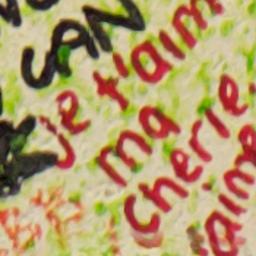 SAN
Je t'aim
ma
cherie
aime